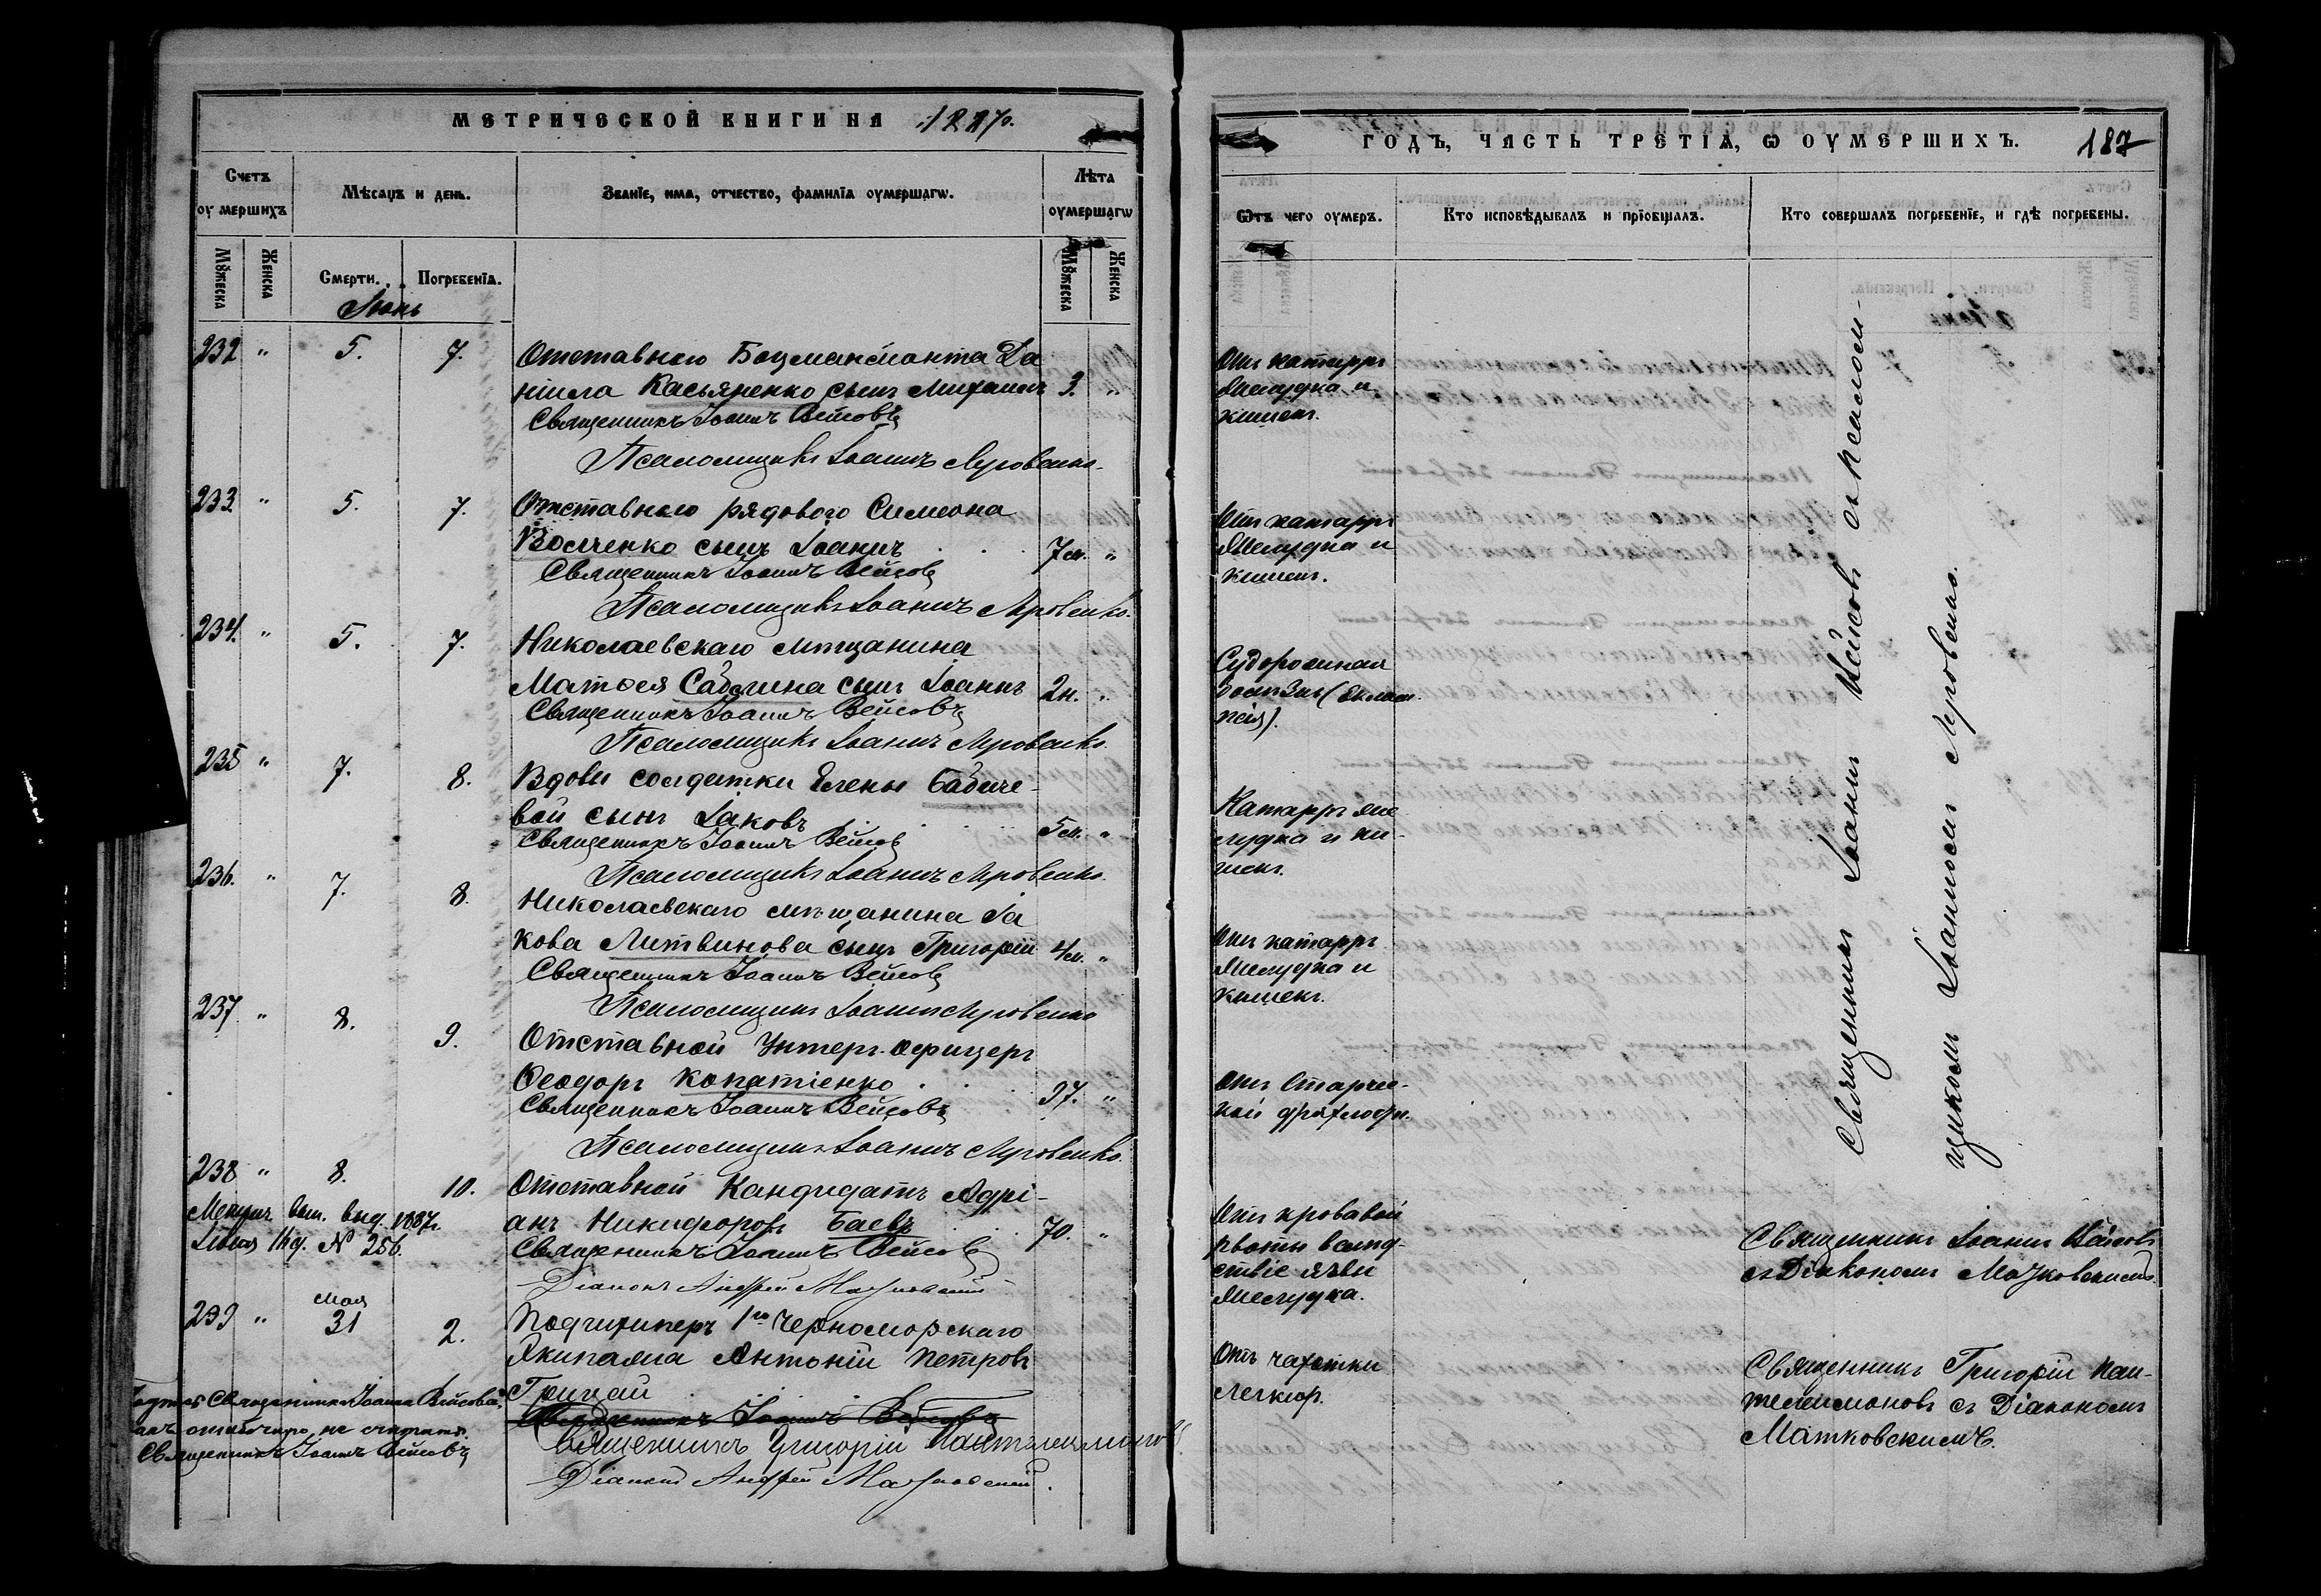 МЕТРИЧЕСКОЙ КНИГИ НА 1887го.
Счетъ оумершихъ
Мѣсяцъ и день.
Званіе, имя, отчество, фамилія оумершагѡ.
Лѣта оумершагѡ
Мꙋжеска
Женска
Смерти.
Погребенія.
Мꙋжеска
Женска
Іюнь
232 " 5. 7. Отставнаго Боцманмáта Да
ніила Касьяненко сынъ Михаилъ 3. "
Священникъ Іоаннъ Вейсовъ
Псаломщикъ Іоаннъ
233 " 5. 7. Отставнаго рядового Симеона
сынъ Іоаннъ 7 м. "
Священникъ Іоаннъ Вейсовъ
Псаломщикъ Іоаннъ
234. " 5. 7. Николаевскаго мѣщанина
Матѳея сынъ Іоаннъ 2 н. "
Священникъ Іоаннъ Вейсовъ
Псаломщикъ Іоаннъ
235 " 7. 8. Вдовы солдатки Елены Бабиче-
вой сынъ Іаковъ 5 м. "
Священникъ Іоаннъ Вейсовъ
Псаломщикъ Іоаннъ
236. " 7. 8. Николаевскаго мѣщанина Іа
кова Литвинова сынъ Григорій 4 м. "
Священникъ Іоаннъ Вейсовъ
Псаломщикъ Іоаннъ
237 " 8. 9. Отставной Унтеръ-офицеръ
Ѳеодоръ Копатіенко 97. "
Священникъ Іоаннъ Вейсовъ
Псаломщикъ Іоаннъ
238 " 8. 10. Отставной Кандидатъ Адрі-
анъ Никифоровъ Баевъ 70. "
Метрич. вып. выд. 1887г.
Іюня 16 д. № 256.
Священникъ Іоаннъ Вейсовъ
Діаконъ Андрей
239 " Мая 31 2. Подшхиперъ 1го Черноморскаго
Экипажа Антоній Петровъ
Грицай
Священникъ Іоаннъ Вейсовъ
Священникъ Григорій Пантелеимоновъ
Діаконъ Андрей
Священника Іоанна Вейсова,
не считать.
Священникъ Іоаннъ Вейсовъ
ГОДЪ, ЧАСТЬ ТРЕТІѦ, Ѡ ОУМЕРШИХЪ. 187
Ѿтъ чего оумеръ.
Кто исповѣдывалъ и пріобщалъ.
Кто совершалъ погребеніе, и гдѣ погребены.
Отъ катарръ
желудка и
кишекъ.
Отъ катарръ
желудка и
кишекъ.
Судорожная
болѣзнь (Эклам-
псія).
Катарръ же
лудка и ки-
шекъ.
Отъ катарръ
желудка и
кишекъ.
Отъ старчес-
кой дряхлости.
Отъ кровавой
рвоты вслѣд-
ствіе язвы
желудка.
Отъ чахотки
легкихъ.
Священникъ Іоаннъ Вейсовъ съ псалом-
щикомъ Іоанномъ
Священникъ Іоаннъ Вейсовъ
съ Діакономъ
Священникъ Григорій Пан-
телеимоновъ съ Діакономъ